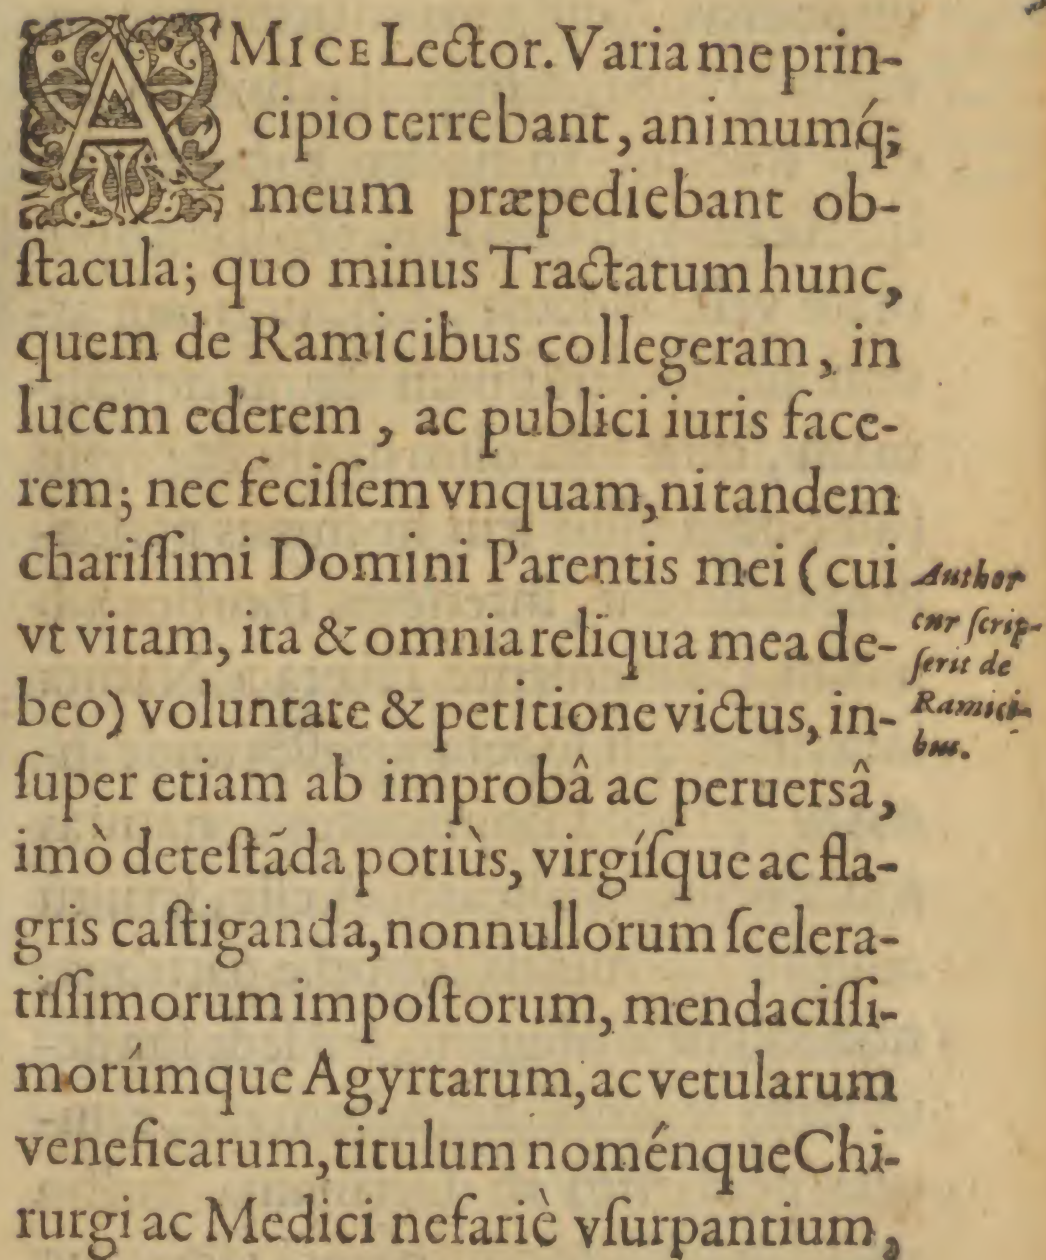 AMICE Lector. Varia me prin-
cipio terrebant, animumq́;
meum præpediebant ob-
ſtacula; quo minus Tractatum hunc,
quem de Ramicibus collegeram, in
lucem ederem, ac publici iuris face-
rem; nec feciſſem vnquam, ni tandem
chariſſimi Domini Parentis mei (cui
vt vitam, ita & omnia reliqua mea de-
beo) voluntate & petitione victus, in-
ſuper etiam ab improbâ ac peruersâ,
imò deteſtãda potiùs, virgíſque ac fla-
gris caſtiganda, nonnullorum ſcelera-
tiſſimorum impoſtorum, mendaciſſi-
morúmque Agyrtarum, ac vetularum
veneficarum, titulum noménque Chi-
rurgi ac Medici nefariè vſurpantium,
Author
cur ſcrip-
ſerit de
Ramici-
bus.